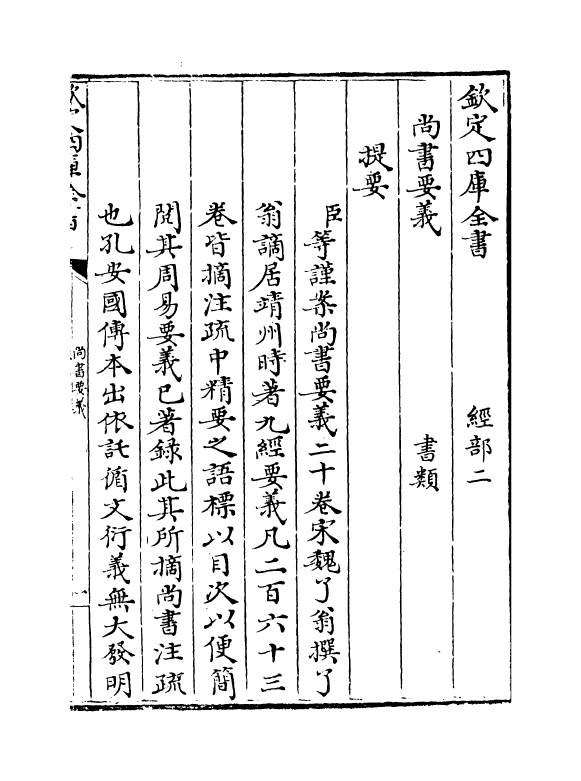 欽定四庫全書 經部二
尚書要義 書類
提要
臣等謹案尚書要義二十卷宋魏了翁撰了
翁謫居靖州時著九經要義凡二百六十三
卷皆摘注疏中精要之語標以目次以便簡
閱其周易要義已著錄此其所摘尚書注疏
也孔安國傳本出依託循文衍義無大發明
尚書要義